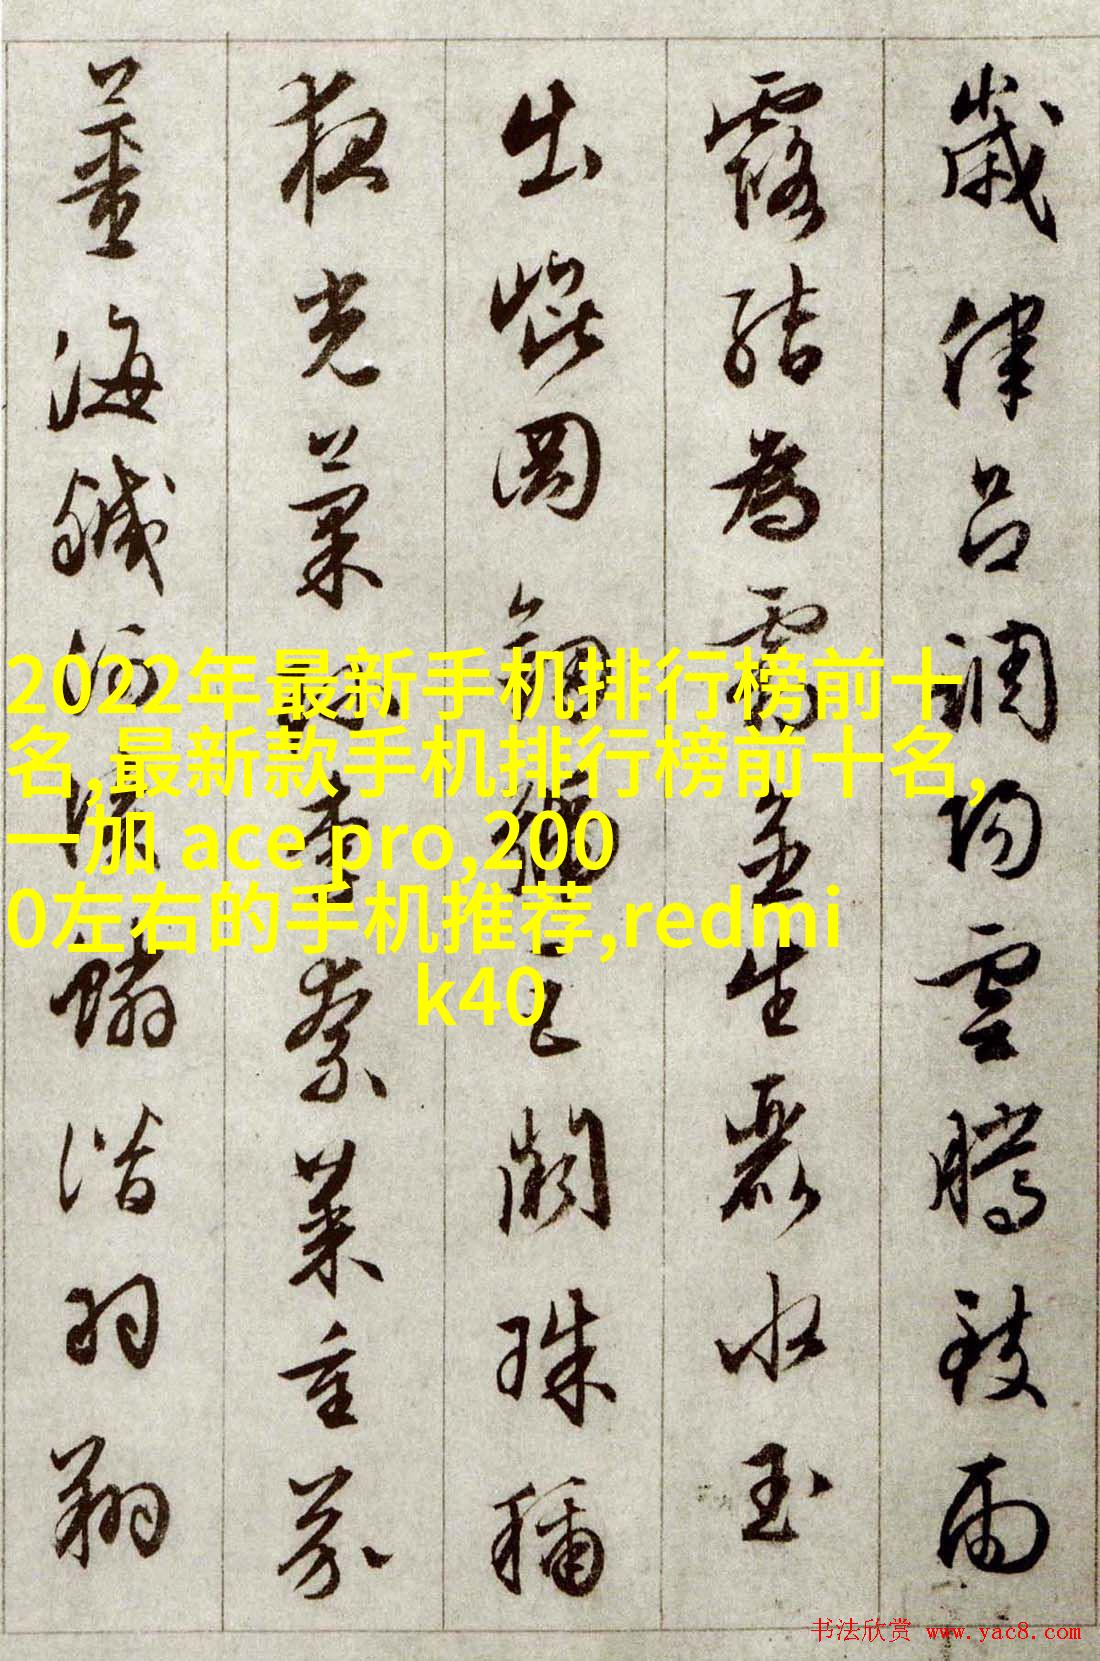 歲律呂調陽雲騰致雨
露結為霜金生麗水玉
出崑岡劍號巨闕珠稱
夜光菓珍李柰菜重芥
薑海鹹河淡鱗潛羽翔
2022年最新手机排行榜前十
名,最新款手机排行榜前十名,
一加 ace pro,200
0左右的手机推荐,redmi
k40
书法欣赏 www.yac8.com